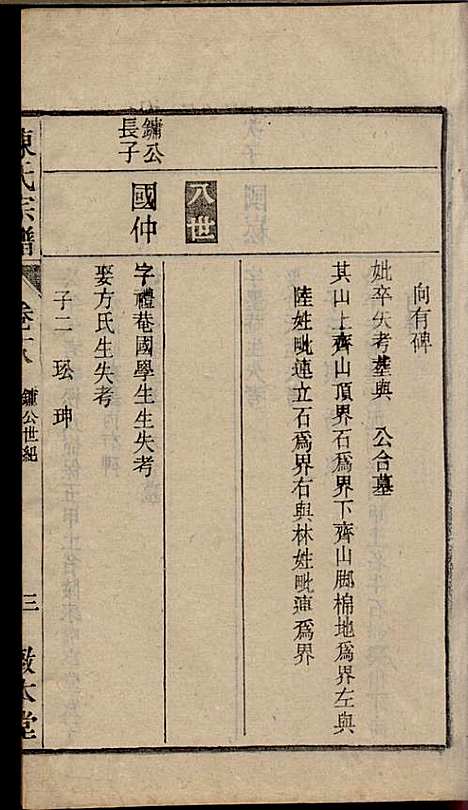 向有碑
妣卒失考墓與 公合墓
其山上齊山頂界石爲界下齊山脚棉地爲界左與
陸姓毗連立石爲界右與林姓毗連爲界
八世
鏞公
長子
國仲
字禮菴國學生生失考
娶方氏生失考
子二 珍 珅
陳氏宗譜 卷十八 鏞公世紀 三 敬本堂